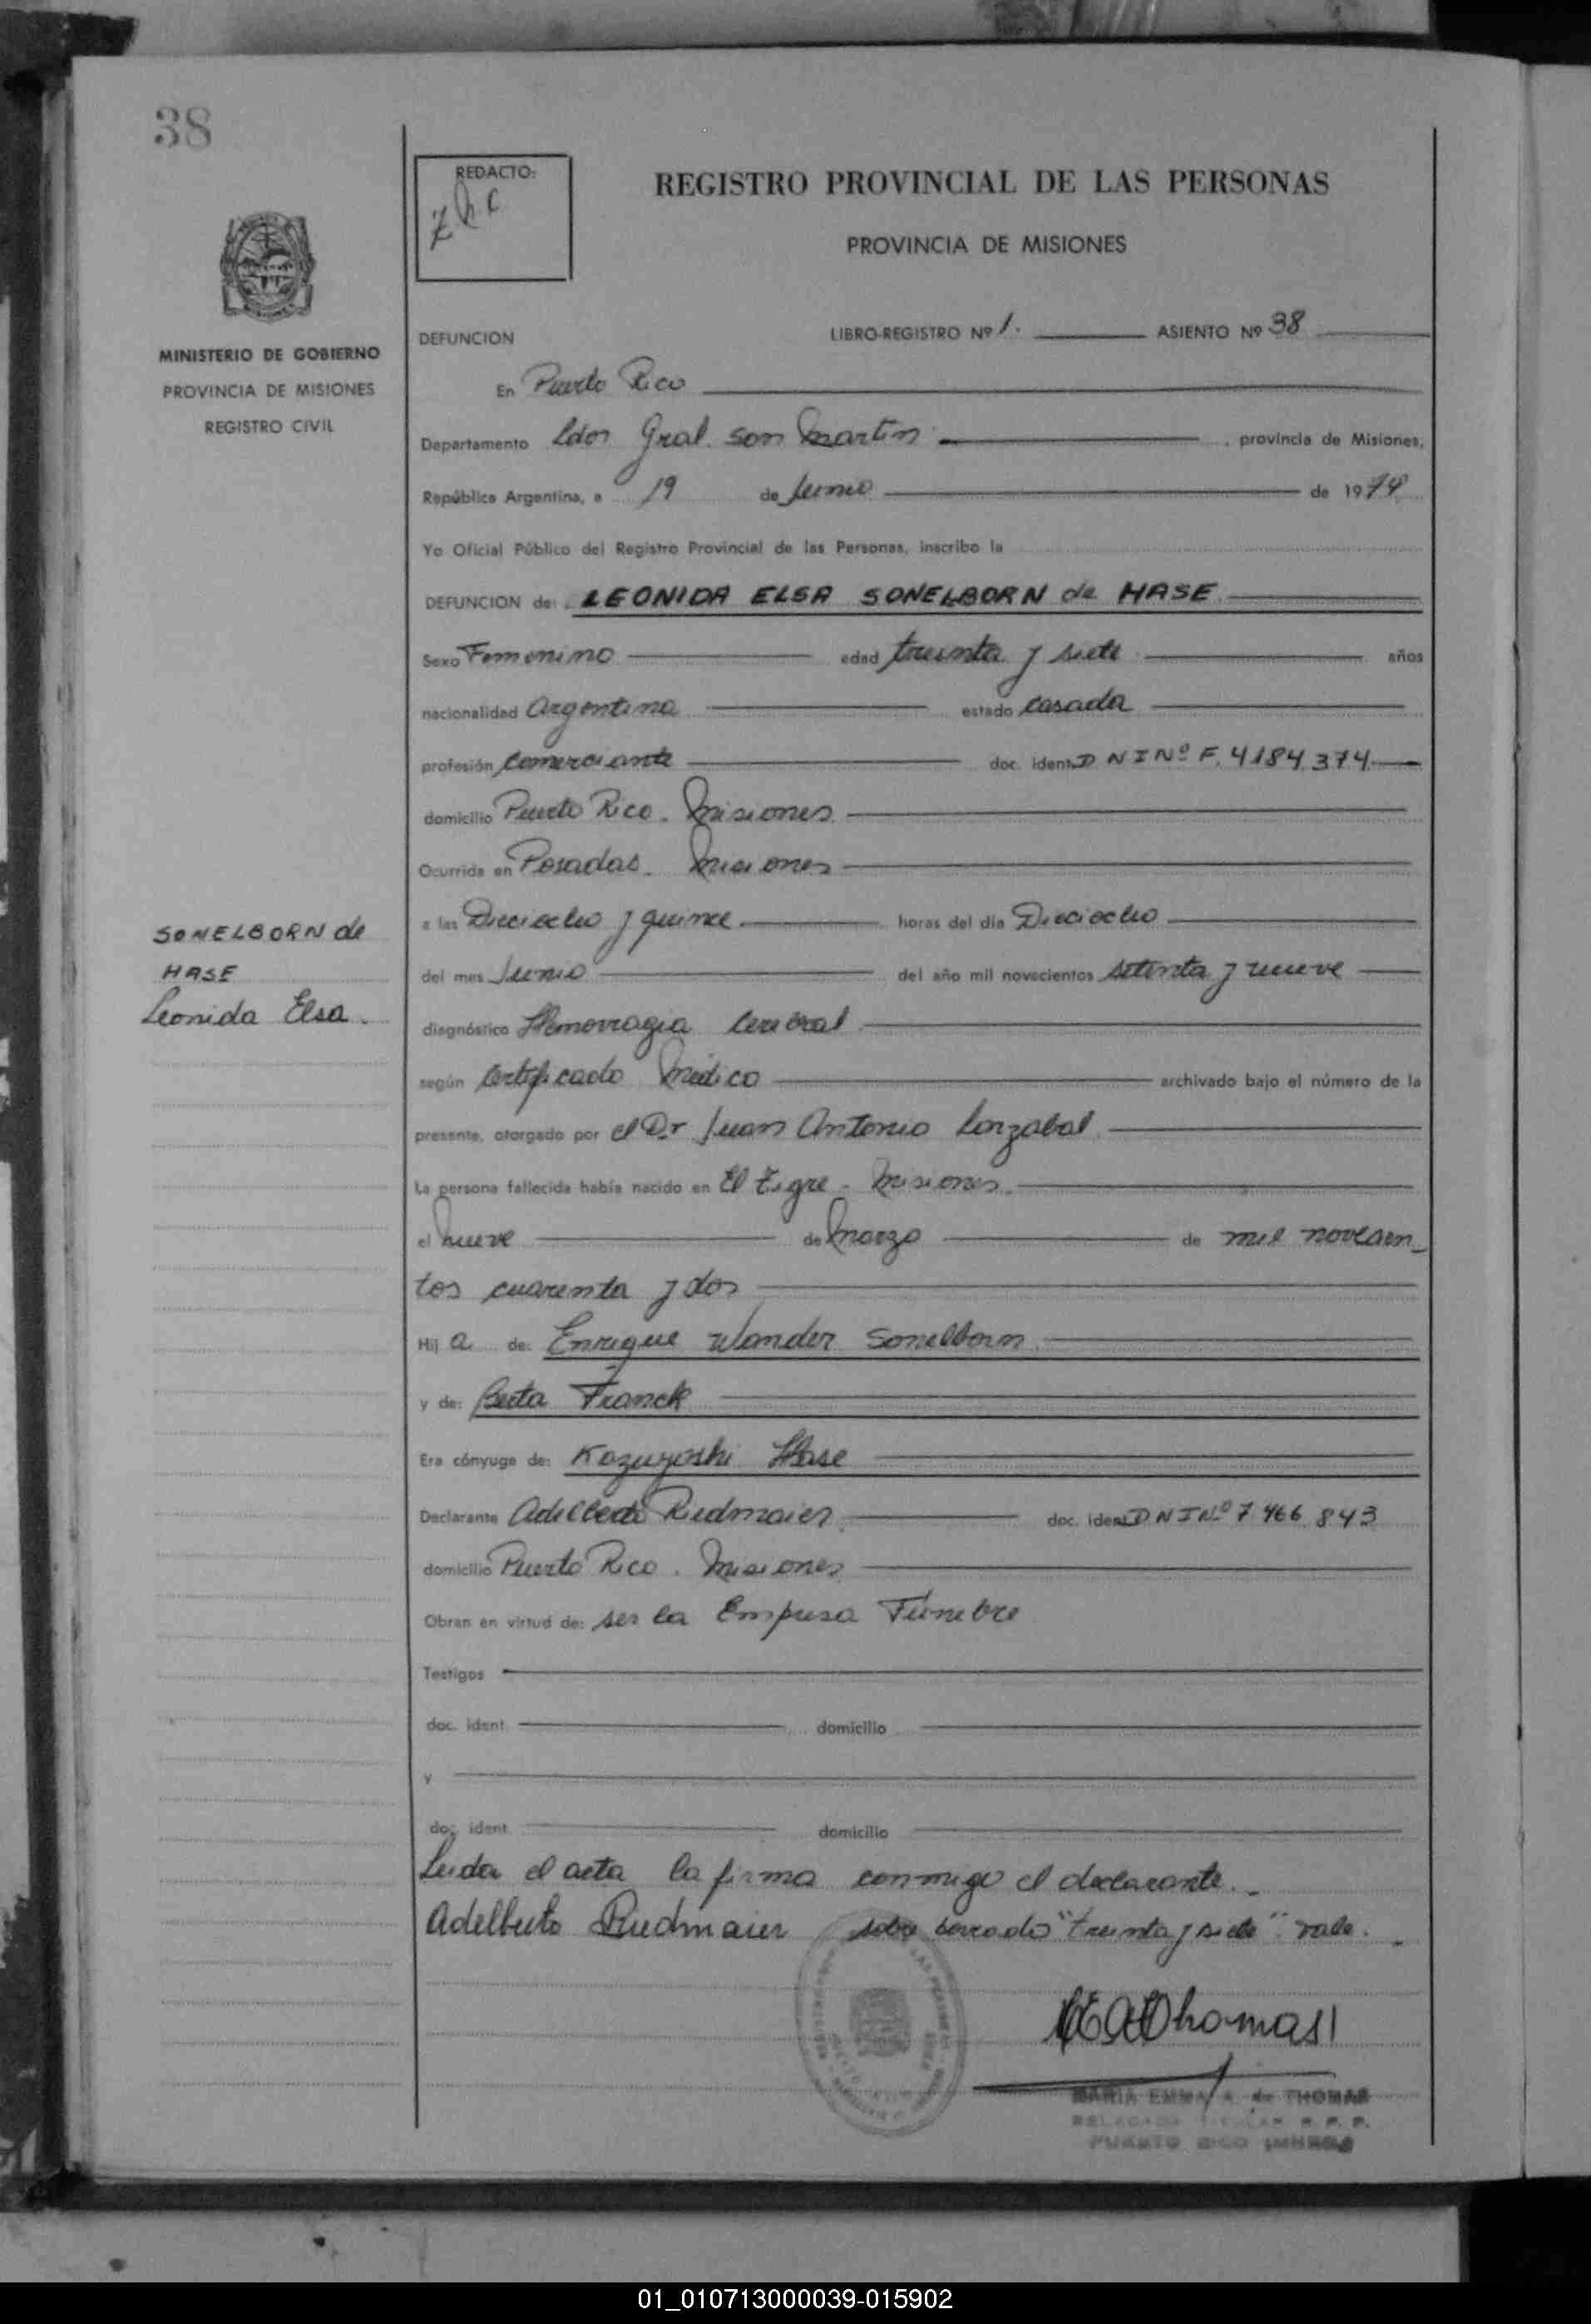 38
REDACTO:
REGISTRO PROVINCIAL DE LAS PERSONAS
PROVINCIA DE MISIONES
MINISTERIO DE GOBIERNO
PROVINCIA DE MISIONES
REGISTRO CIVIL
DEFUNCION LIBRO-REGISTRO Nº 1. ASIENTO Nº 38
En Puerto Rico
Departamento Ldor Gral. San Martin, provincia de Misiones,
República Argentina, a 19 de Junio de 1979
Yo Oficial Público del Registro Provincial de las Personas, inscribo la
DEFUNCION de: LEONIDA ELSA SONELBORN de HASE
Sexo Femenino edad treinta y siete años
nacionalidad Argentina estado casada
profesión comerciante doc. ident. DNI Nº F. 4184374
domicilio Puerto Rico. Misiones
Ocurrida en Posadas. Misiones
a las Dieciocho y quince horas del día Dieciocho
del mes Junio del año mil novecientos setenta y nueve
diagnóstico Hemorragia Cerebral
según Certificado Médico archivado bajo el número de la
presente, otorgado por el Dr Juan Antonio Lonzabal
La persona fallecida había nacido en El Tigre - Misiones
el nueve de marzo de mil novecien_
tos cuarenta y dos
Hij a de: Enrique Wander Sonelborn
y de: Berta Franck
Era cónyuge de: Kazuyoshi Hase
Declarante Adelberto Riedmaier doc. ident. DNI Nº 7 466 843
domicilio Puerto Rico. Misiones
Obran en virtud de: ser la Empresa Fúnebre
Testigos
doc. ident. domicilio
y
doc. ident. domicilio
Leida el acta la firma conmigo el declarante._
Adelberto Riedmaier sobre borrado "treinta y siete": vale.
SONELBORN de
HASE
Leonida Elsa.
MARIA EMMA A. de THOMAS
PUERTO RICO
01_010713000039-015902